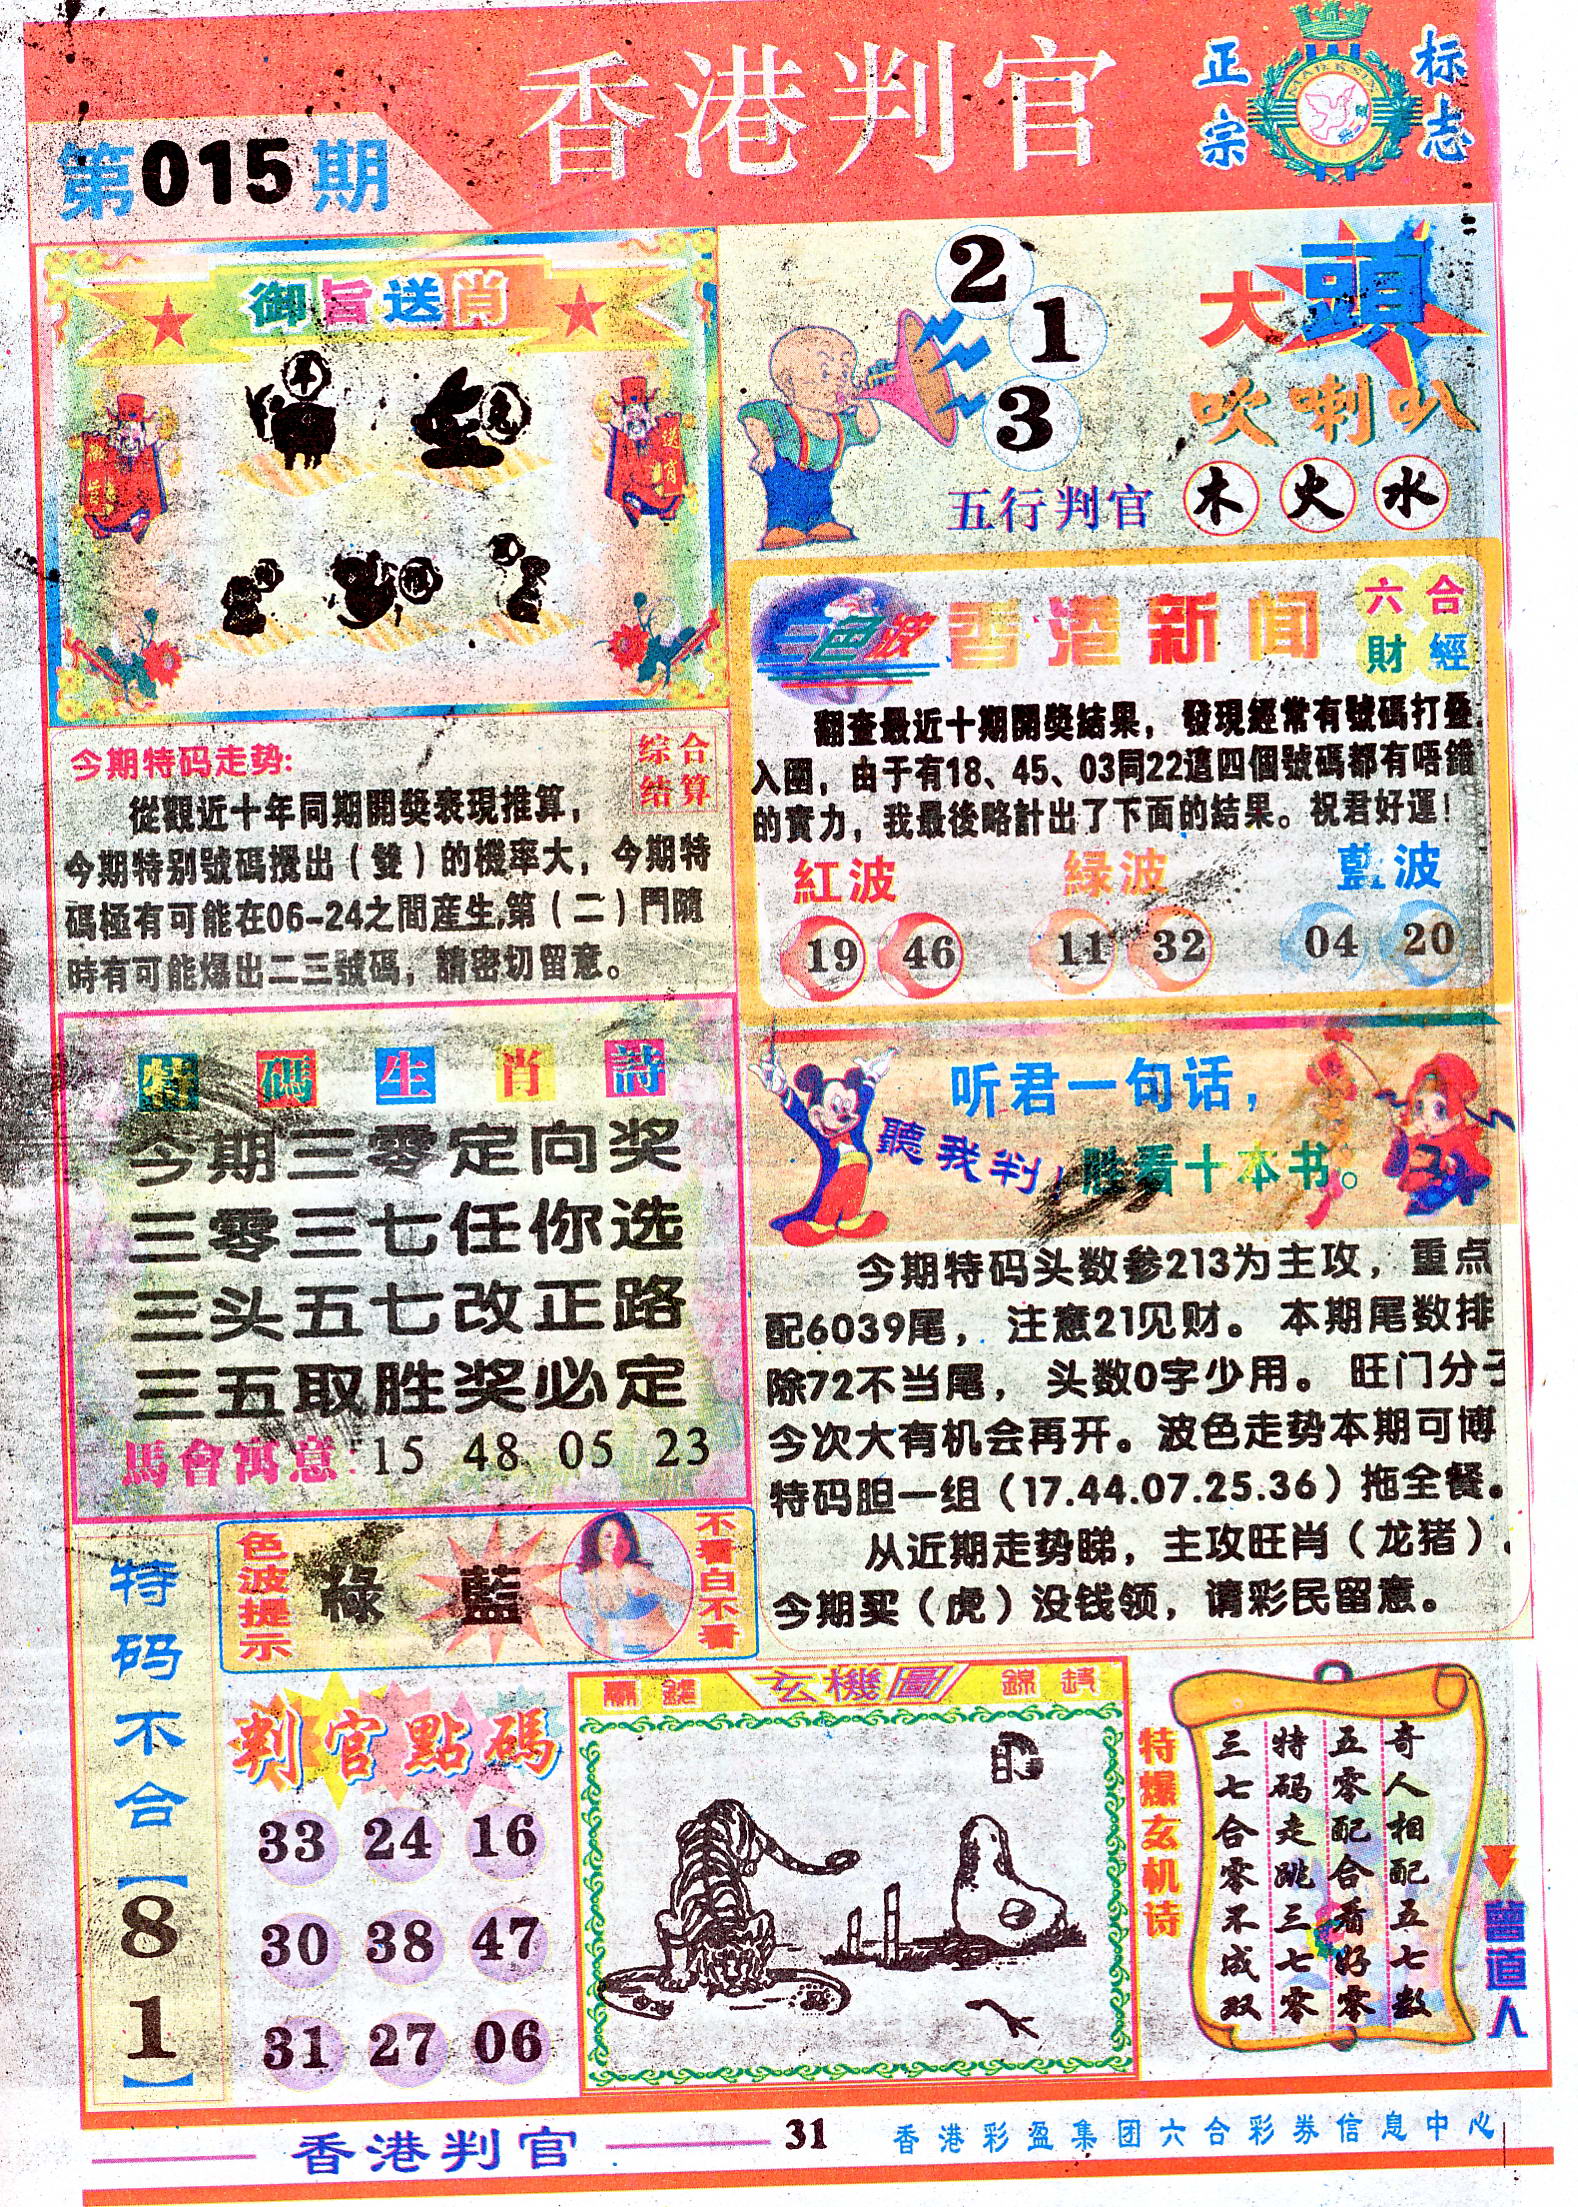 香港判官
正宗
标志
第015期
御旨送肖
羊
兔
2
1
3
大頭
吹喇叭
五行判官 木 火 水
三色波
香港新闻
六合
財經
翻查最近十期開獎結果，發現經常有號碼打叠
入圍，由于有18、45、03同22這四個號碼都有唔錯
的實力，我最後略計出了下面的結果。祝君好運！
紅波 緑波 藍波
19 46 11 32 04 20
今期特码走势:
综合
结算
從觀近十年同期開獎表現推算，
今期特别號碼攪出（雙）的機率大，今期特
碼極有可能在06-24之間産生,第（二）門隨
時有可能爆出二三號碼，請密切留意。
特碼生肖詩
今期三零定向奖
三零三七任你选
三头五七改正路
三五取胜奖必定
馬會寓意: 15 48 05 23
听君一句话，
聽我判！
胜看十本书。
今期特码头数参213为主攻，重点
配6039尾，注意21见财。本期尾数排
除72不当尾，头数0字少用。旺门分子
今次大有机会再开。波色走势本期可博
特码胆一组（17.44.07.25.36）拖全餐。
从近期走势睇，主攻旺肖（龙猪）。
今期买（虎）没钱领，请彩民留意。
色波提示
綠 藍
不看白不看
特码不合【81】
判官點碼
33 24 16
30 38 47
31 27 06
玄機圖
特爆玄机诗
奇人相配五七数
五零配合看好零
特码走跳三七零
三七合零不成双
曾道人
香港判官
31
香港彩盈集团六合彩券信息中心